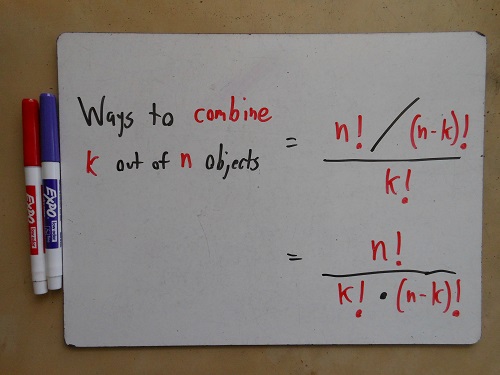 Ways to combine
k out of n objects
= n! / (n-k)!
k!
= n!
k! • (n-k)!
EXPO
EXPO